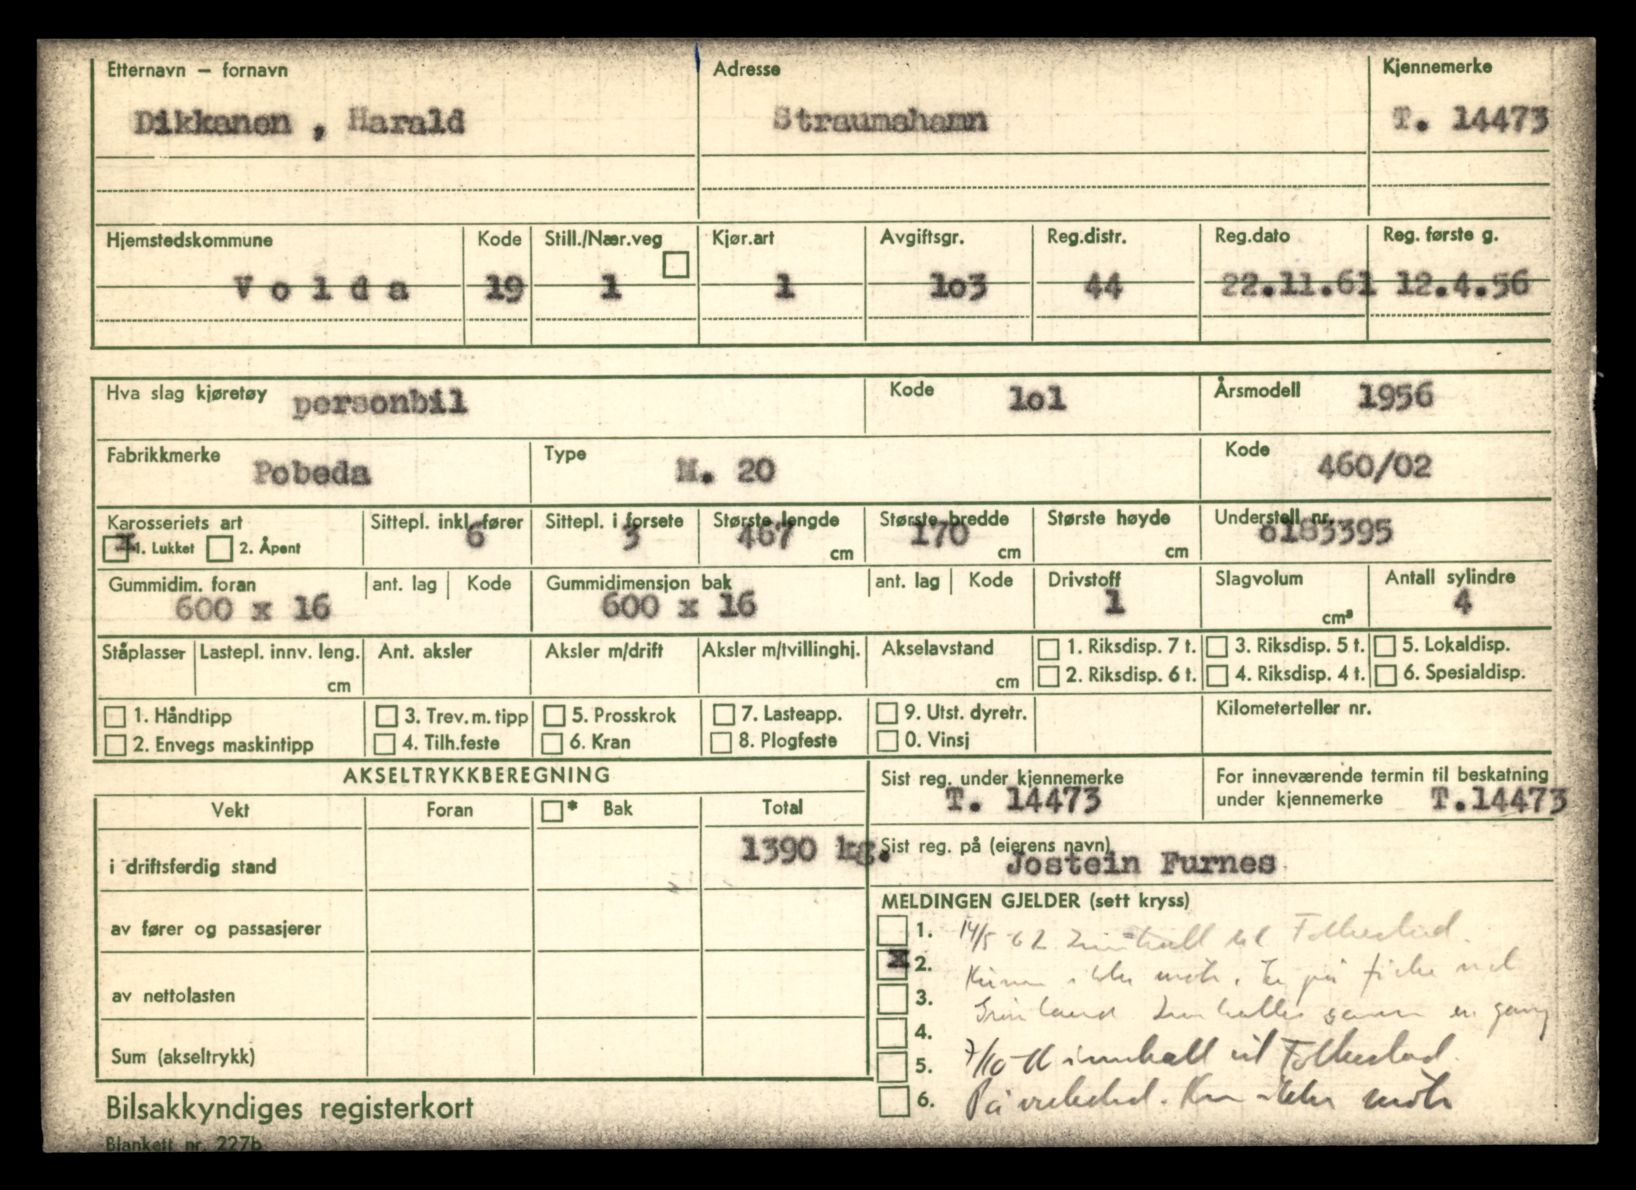 Etternavn – fornavn Adresse Kjennemerke
Dikkanen , Harald Straumshamn T. 14473
Hjemstedskommune Kode Still./Nær.veg Kjør.art Avgiftsgr. Reg.distr. Reg.dato Reg. første g.
Volda 19 1 1 1o3 44 22.11.61 12.4.56
Hva slag kjøretøy personbil Kode 1o1 Årsmodell 1956
Fabrikkmerke Pobeda Type M. 20 Kode 460/02
Karosseriets art Sittepl. inkl. fører Sittepl. i forsete Største lengde Største bredde Største høyde Understell nr.
x 1. Lukket 2. Åpent 6 3 467 cm 170 cm cm 6183395
Gummidim. foran ant. lag Kode Gummidimensjon bak ant. lag Kode Drivstoff Slagvolum Antall sylindre
600 x 16 600 x 16 1 cm³ 4
Ståplasser Lastepl. innv. leng. Ant. aksler Aksler m/drift Aksler m/tvillinghj. Akselavstand 1. Riksdisp. 7 t. 3. Riksdisp. 5 t. 5. Lokaldisp.
cm cm 2. Riksdisp. 6 t. 4. Riksdisp. 4 t. 6. Spesialdisp.
1. Håndtipp 3. Trev. m. tipp 5. Prosskrok 7. Lasteapp. 9. Utst. dyretr. Kilometerteller nr.
2. Envegs maskintipp 4. Tilh.feste 6. Kran 8. Plogfeste 0. Vinsj
AKSELTRYKKBEREGNING
Sist reg. under kjennemerke For inneværende termin til beskatning
T. 14473 under kjennemerke T.14473
Vekt Foran * Bak Total
i driftsferdig stand 1390 kg.
Sist reg. på (eierens navn)
Jostein Furnes
av fører og passasjerer
av nettolasten
Sum (akseltrykk)
MELDINGEN GJELDER (sett kryss)
1. 14/5-62 Innkall til Folkestad.
x 2. ikke møte. på fiske ved
3. Grønland Innkalles en gang
4.
5. 7/10-62 innkall til Folkestad.
6. På Kan ikke møte
Bilsakkyndiges registerkort
Blankett nr. 227b